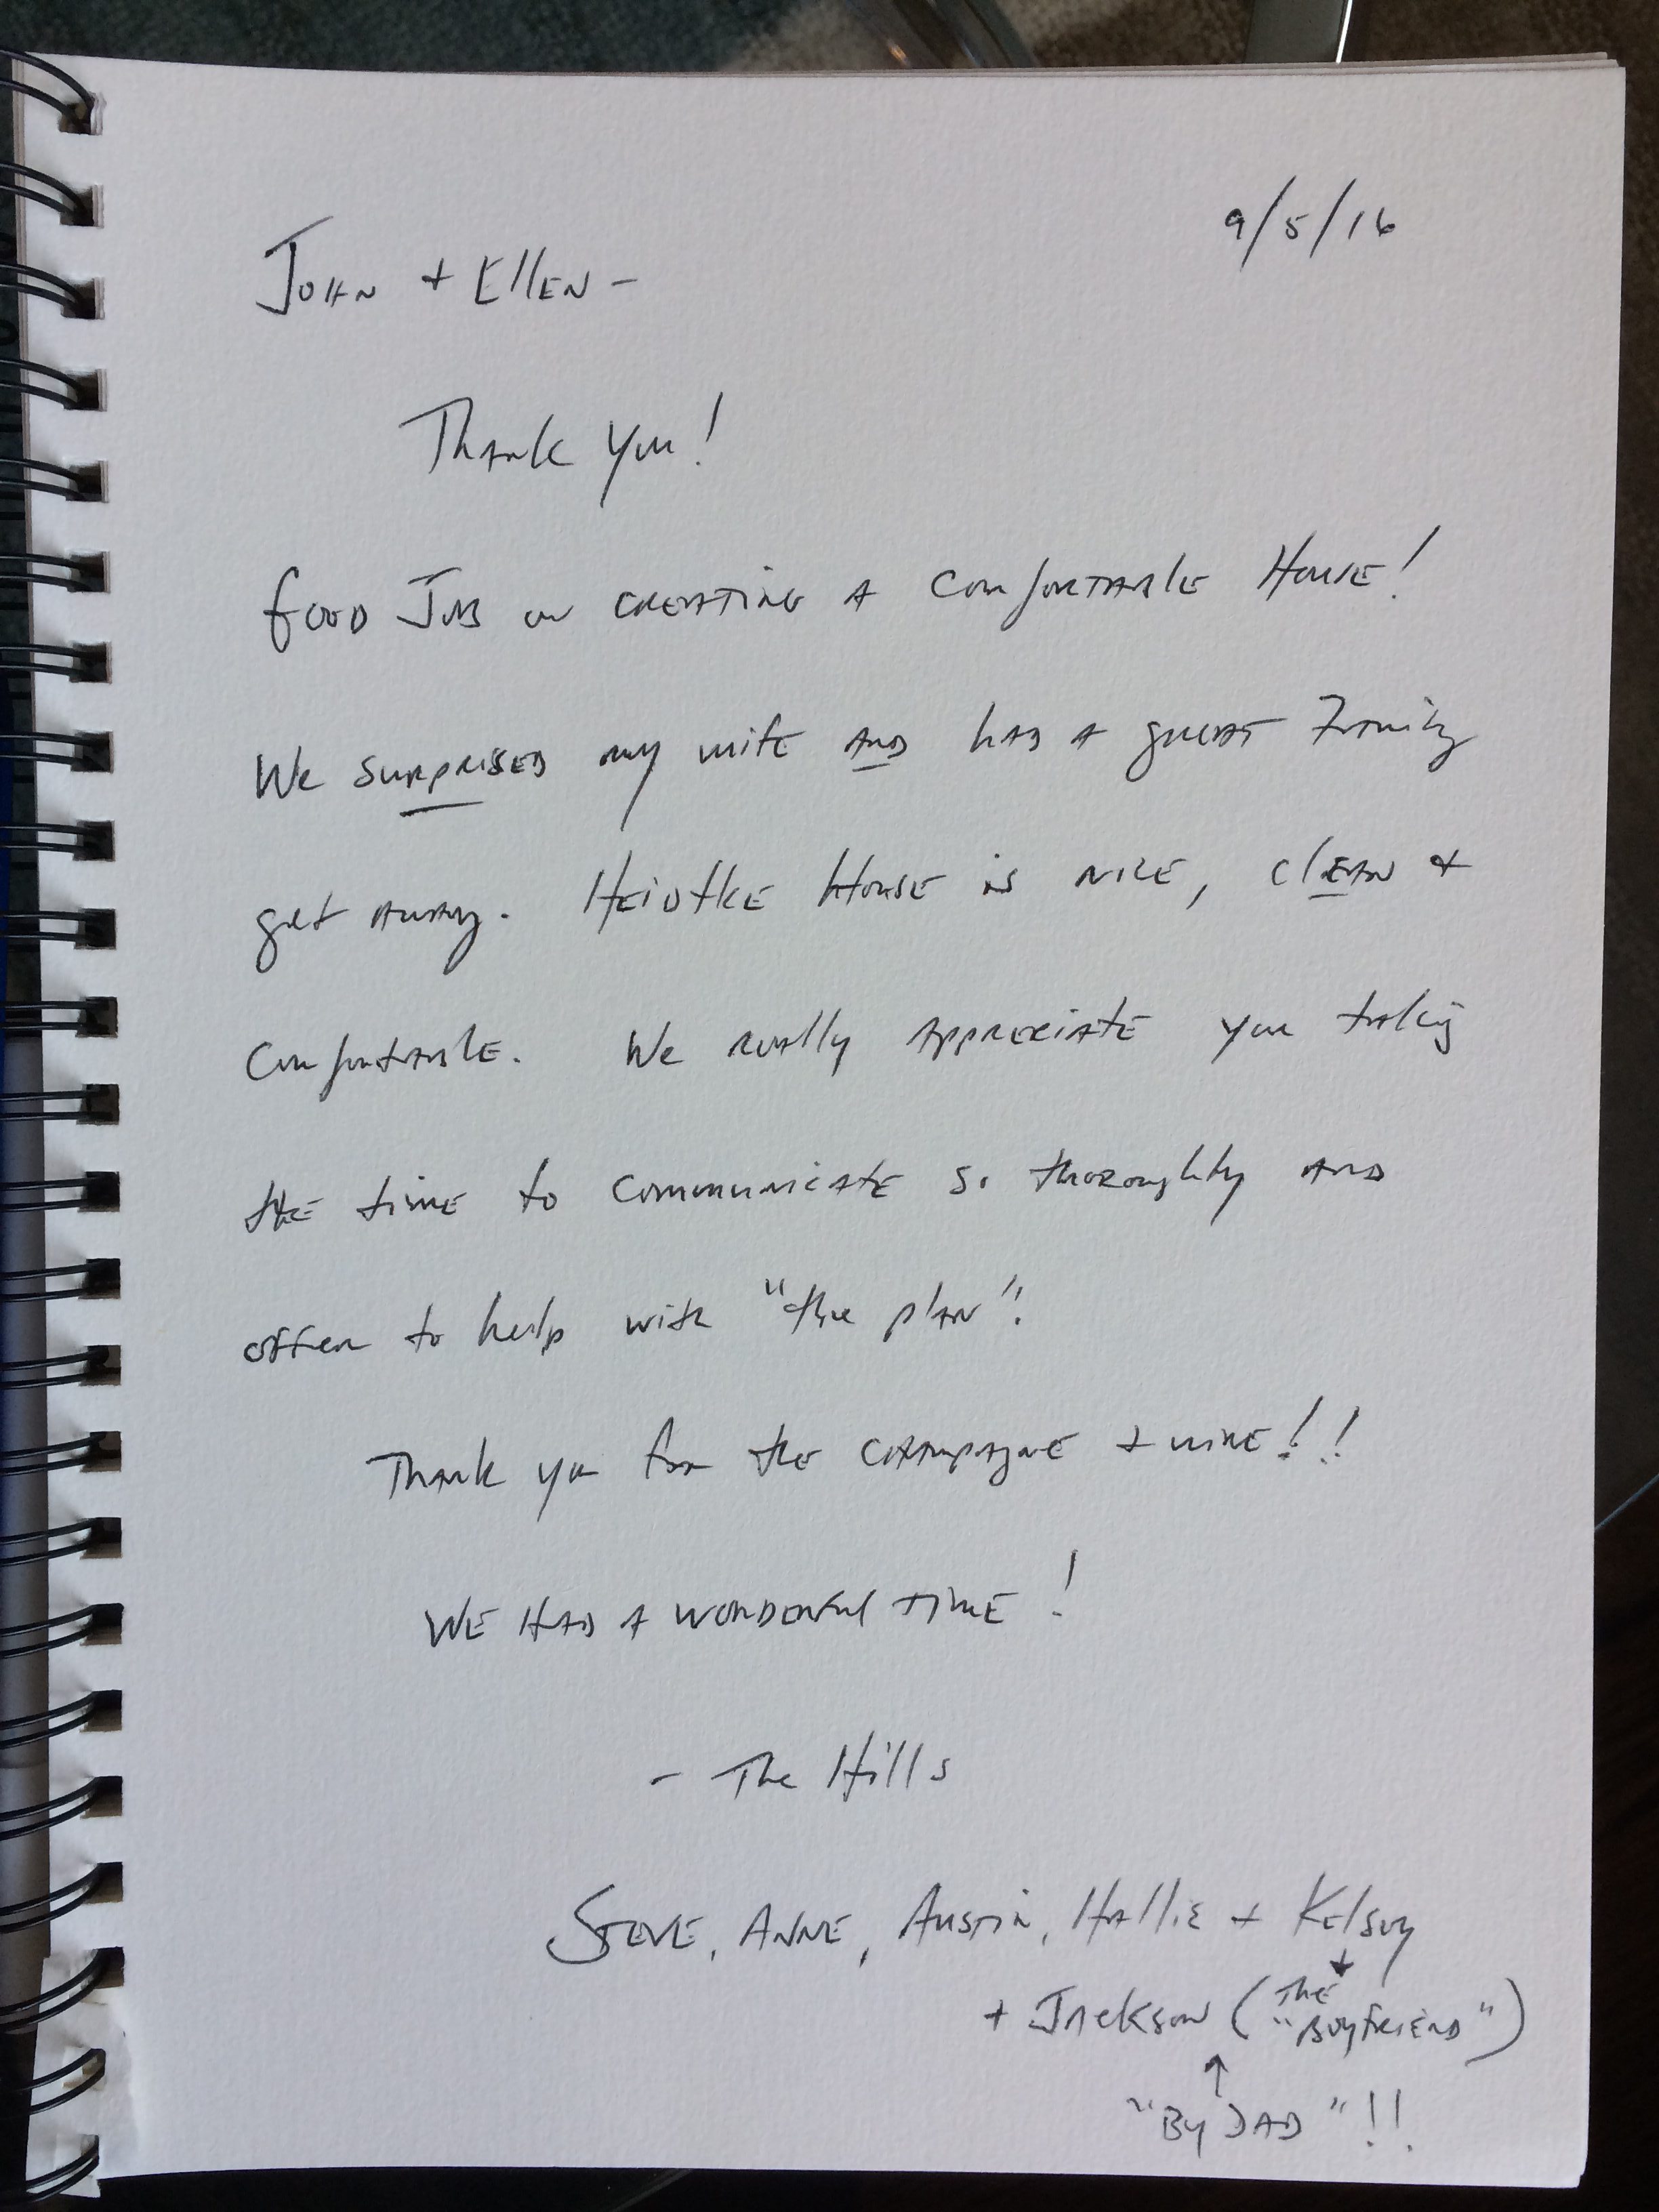 9/5/16
John + Ellen -
Thank you!
Good Job on creating a comfortable House!
We surprised my wife and had a great Family
get away. Heidtke House is nice, clean +
comfortable. We really appreciate you taking
the time to communicate so thoroughly and
offer to help with "the plan".
Thank you for the champagne + wine!!
We had a wonderful time!
- The Hills
Steve, Anne, Austin, Hallie + Kelsey
+ Jackson (The "Boyfriend")
"By DAD"!!